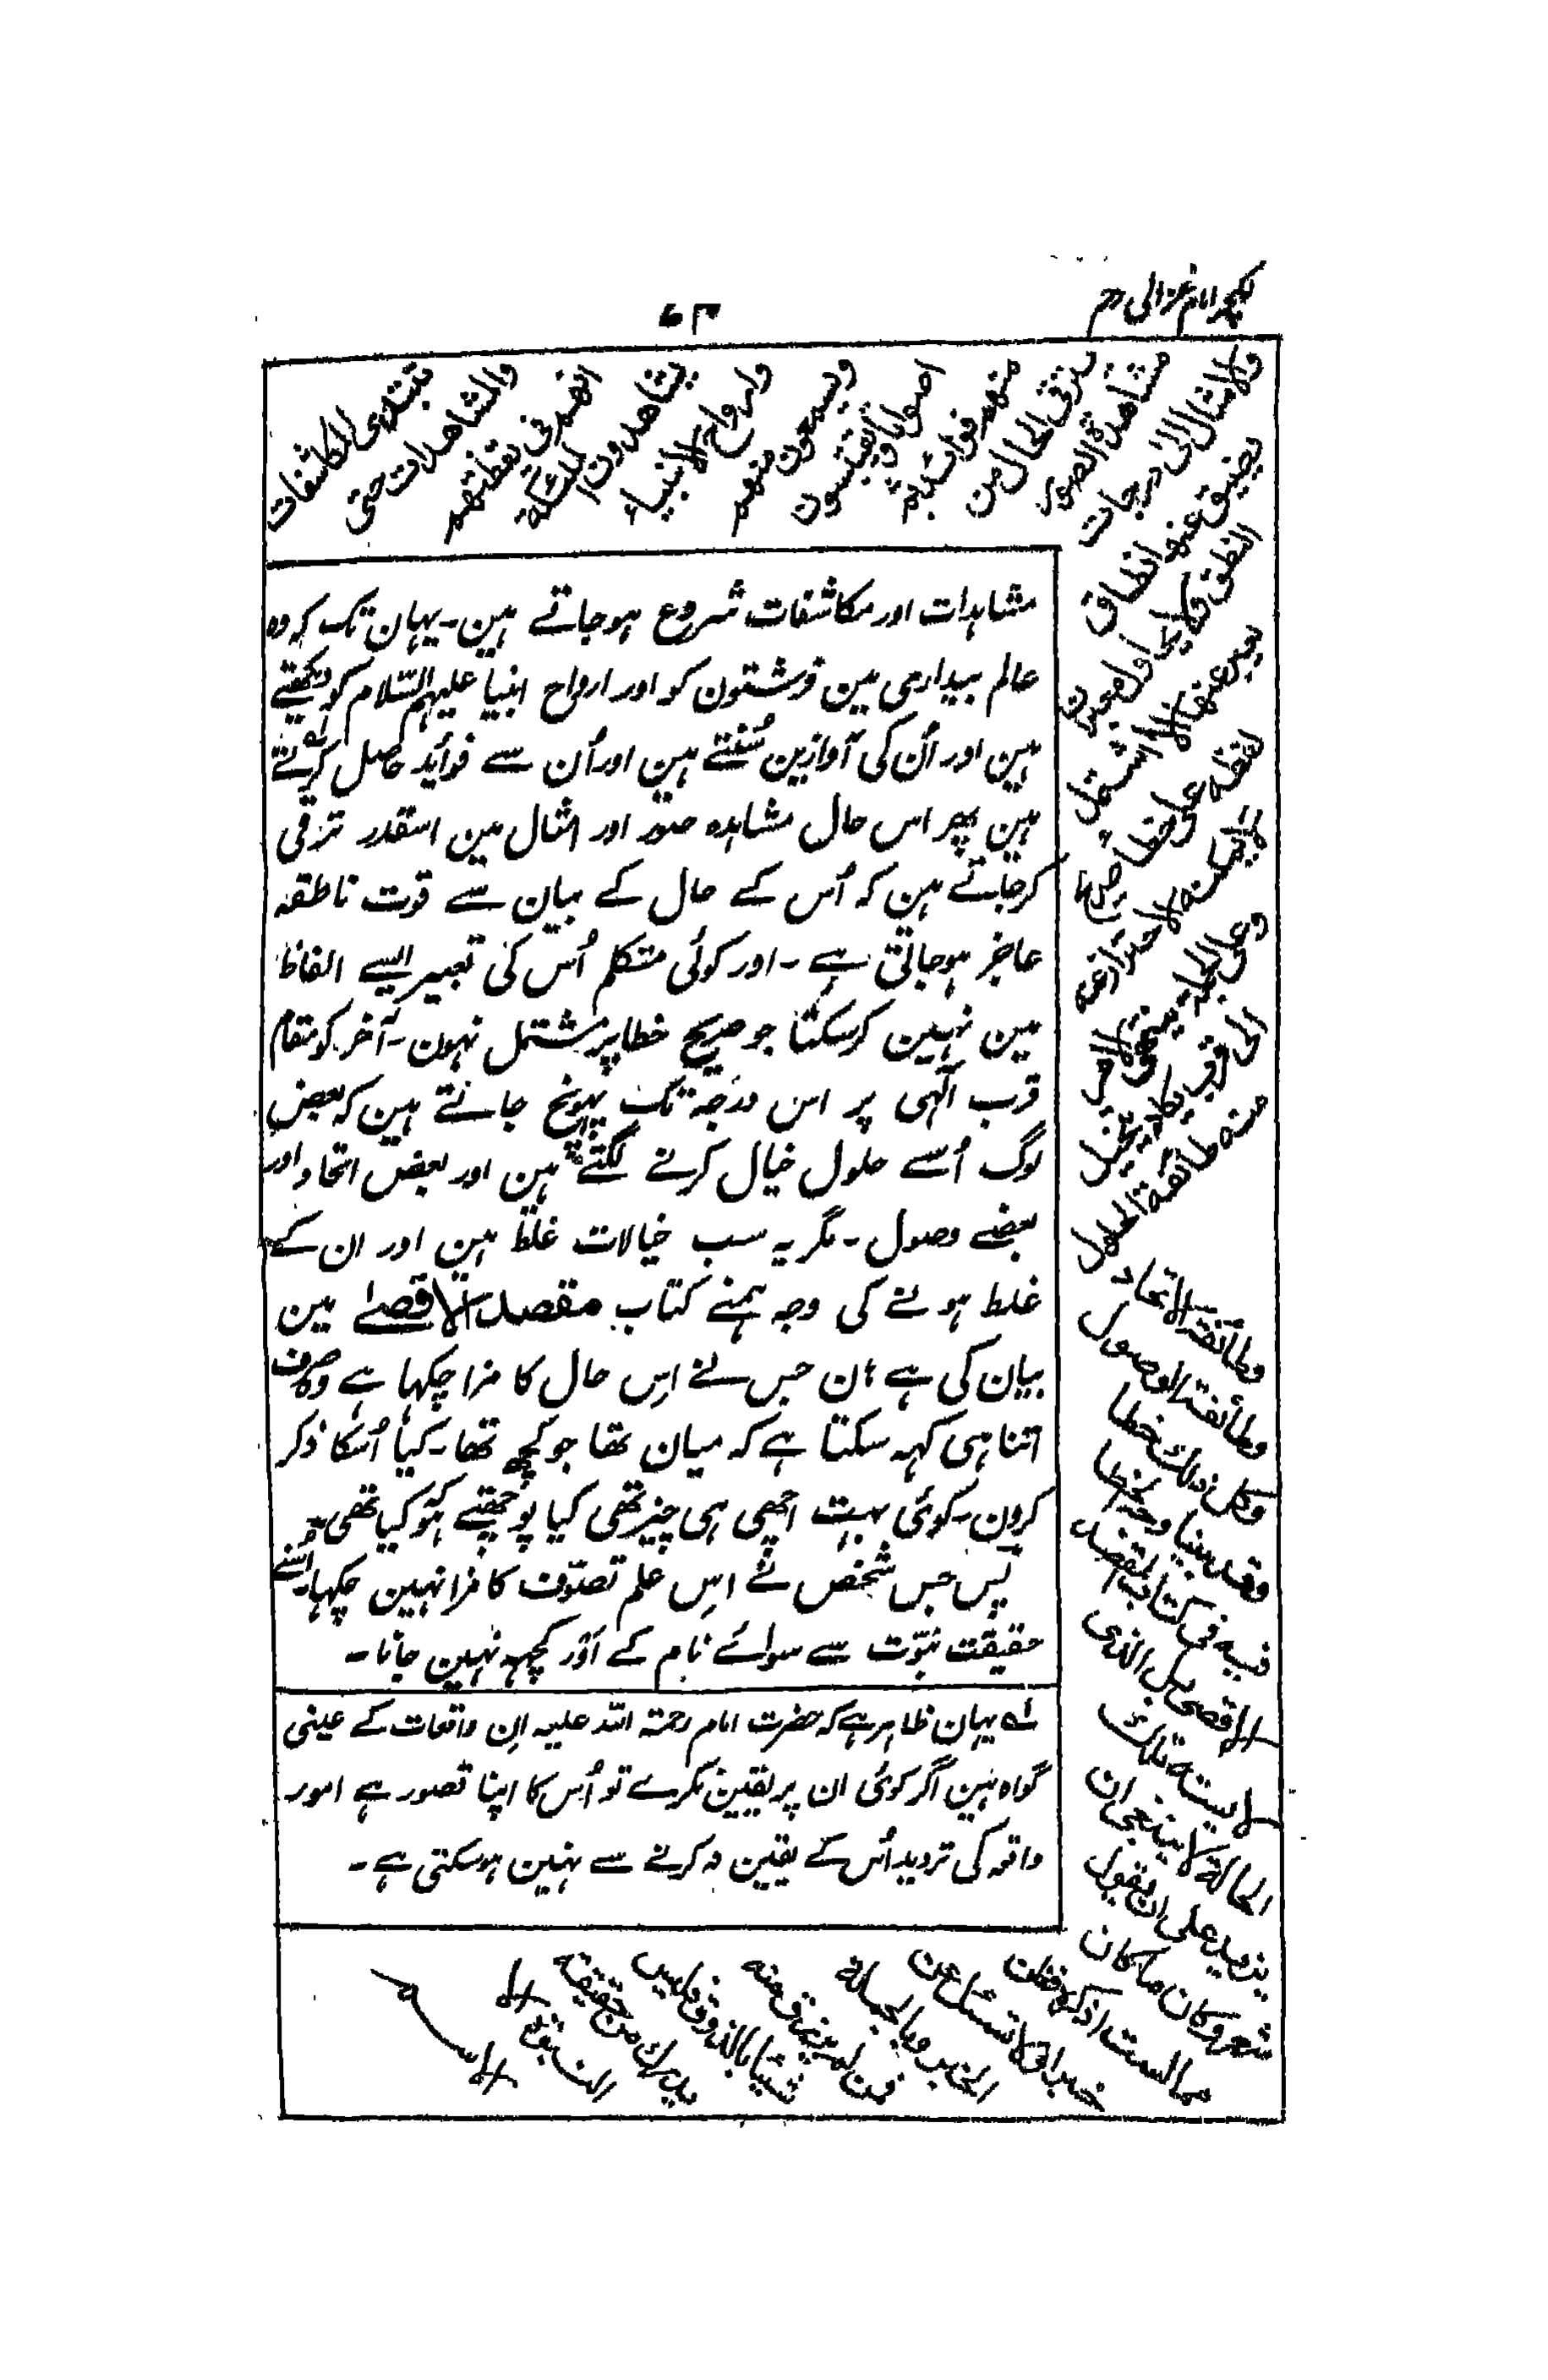 لکچر امام غزالی رح
۶۳
تبتدی المکاشفات
والمشاهدات حتی
انهم فی یقظتهم
یشاهدون الملئکة
وارواح الانبیاء
ویسمعون منهم
اصواتا ویقتبسون
منهم فوائد ثم
یترقی الحال من
مشاهدة الصور
والامثال الی درجات
یضیق عنها نطاق
النطق فلا یحاول معبر ان
یعبر عنها الا اشتمل
لفظه علی خطا صریح
لا یمکنه الاحتراز عنه
وعلی الجملة ینتهی الامر
الی قرب یکاد یتخیل
منه طائفة الحلول
وطائفة الاتحاد
وطائفة الوصول
وکل ذلک خطا
وقد بینا وجه الخطا
فیه فی کتاب المقصد
الاقصی بل الذی
لابسته تلک
الحالة لا ینبغی ان
یزید علی ان یقول
شعر وکان ما کان
مما لست اذکره فظن
خیرا ولا تسئل عن
الخبر وبالجملة
فمن لم یرزق منه
شیئا بالذوق فلیس
یدرک من حقیقة
النبوة الا
الاسم
مشاہدات اور مکاشفات شروع ہوجاتے ہین۔ یہان تک کہ وہ
عالم بیداری مین فرشتون کو اور ارواح انبیا علیہم السّلام کو دیکھتے
ہین اور اُن کی آوازین سُنتے ہین اور اُن سے فوائد حاصل کرتے
ہین پھر اس حال مشاہدہ صور اور امثال مین اسقدر ترقی
کرجاتے ہین کہ اُس کے حال کے بیان سے قوت ناطقہ
عاجز ہوجاتی ہے ۔ اور کوئی متکلم اُس کی تعبیر ایسے الفاظ
مین نہین کرسکتا جو صریح خطا پر مشتمل نہون ۔ آخر کو مقام
قرب الٰہی پر اس درجہ تک پہونچ جاتے ہین کہ بعض
لوگ اُسے حلول خیال کرنے لگتے ہین اور بعض اتحاد اور
بعضے وصول ۔ مگر یہ سب خیالات غلط ہین اور ان کے
غلط ہونے کی وجہ ہمنے کتاب مقصد الاقصےٰ مین
بیان کی ہے ان جس نے اس حال کا مزا چکہا ہے وہ صرف
اتنا ہی کہہ سکتا ہے کہ میان تھا جو کچھ تھا ۔ کیا اُسکا ذکر
کرون ۔ کوئی بہت اچھی ہی چیز تھی کیا پوچھتے ہو کیا تھی ۔
پس جس شخص نے اس علم تصوّف کا مزا نہین چکہا اسنے
حقیقت نبوّت سے سوائے نام کے اَور کچھ نہین جانا ۔
لہ یہان ظاہر ہے کہ حضرت امام رحمتہ اللہ علیہ اِن واقعات کے عینی
گواہ ہین اگر کوئی ان پر یقین نکرے تو اُس کا اپنا قصور ہے امور
واقعہ کی تردید اُس کے یقین نہ کرنے سے نہین ہوسکتی ہے ۔